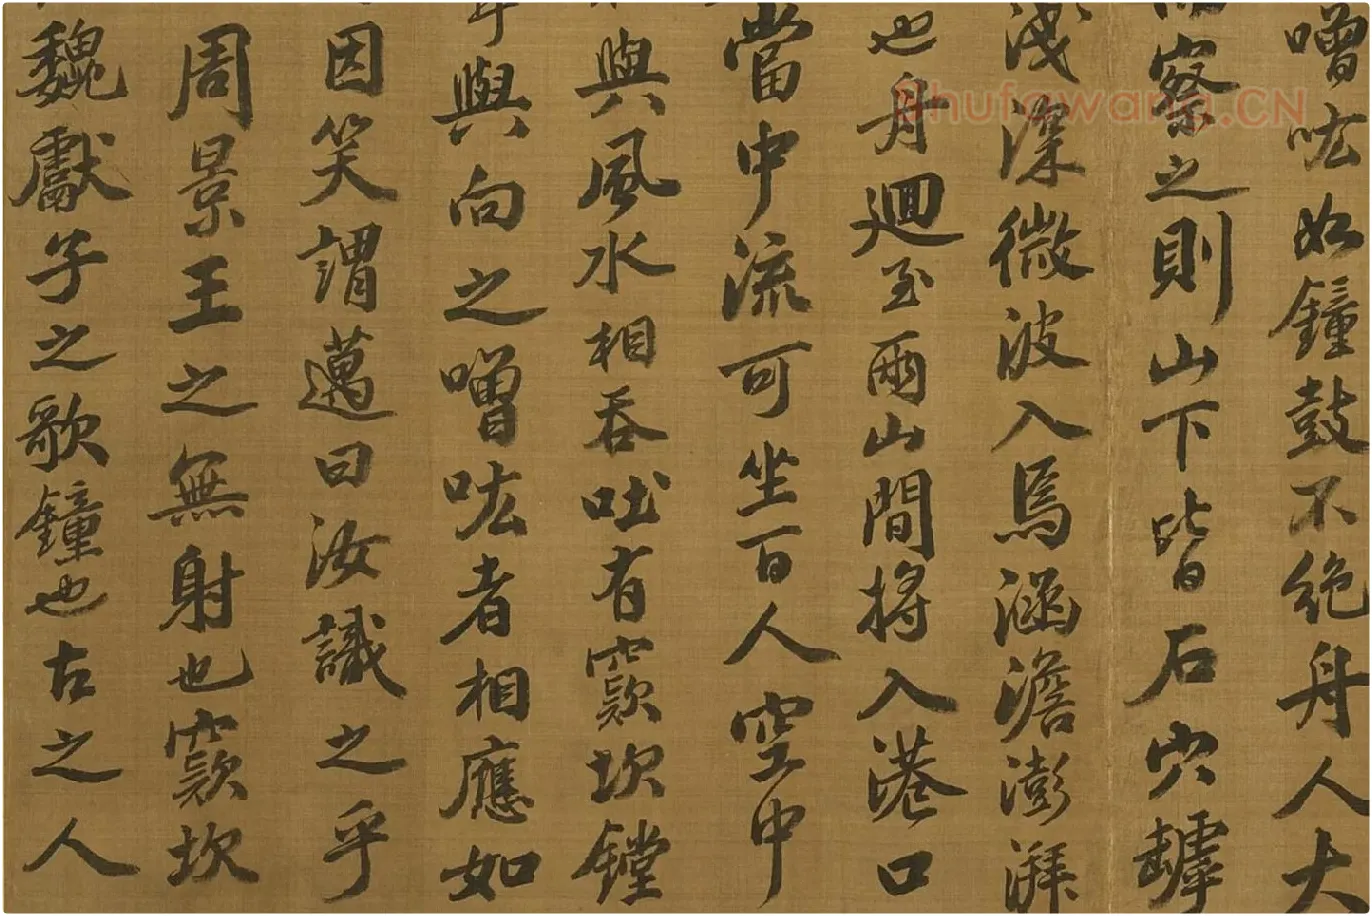 噌吰如鐘鼓不絕舟人大
察之則山下皆石穴罅
淺深微波入焉涵澹澎湃
也舟迴至兩山間將入港口
當中流可坐百人空中
與風水相吞吐有窾坎鏜
與向之噌吰者相應如
因笑謂邁曰汝識之乎
周景王之無射也窾坎
魏獻子之歌鐘也古之人
Shufawang.CN